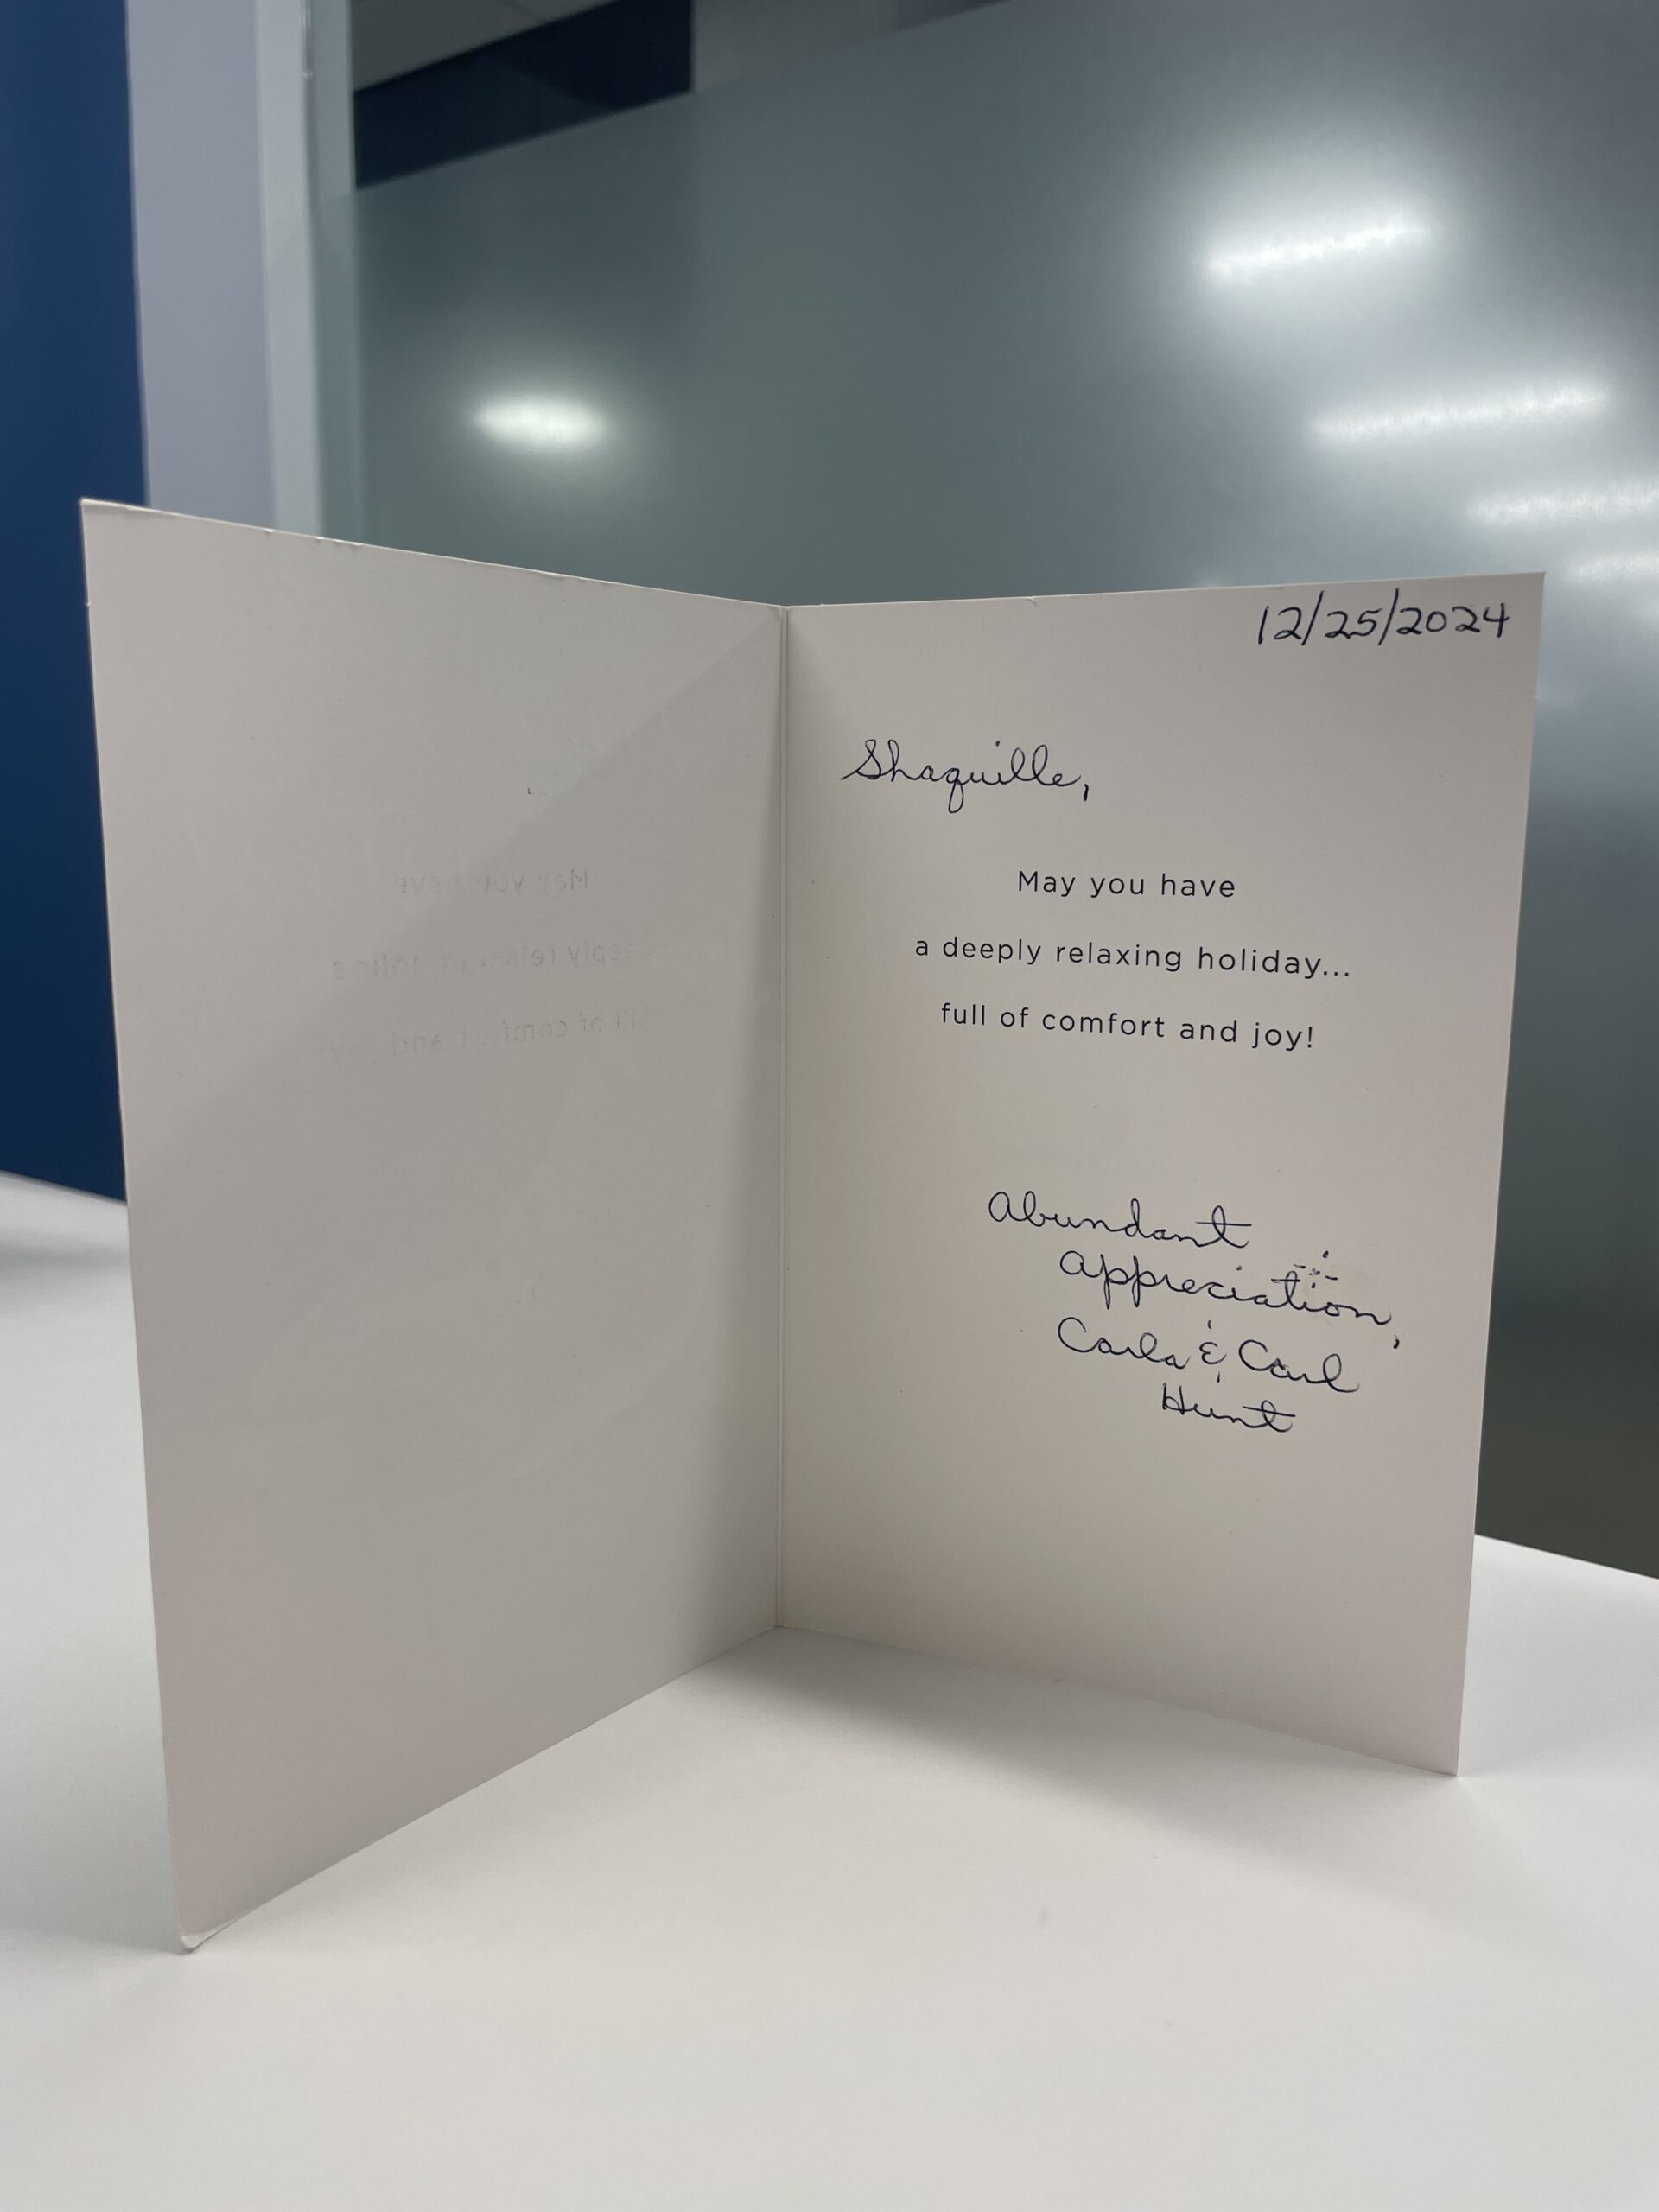 12/25/2024
Shaquille,
May you have
a deeply relaxing holiday...
full of comfort and joy!
Abundant
appreciation,
Carla & Carl
Hunt